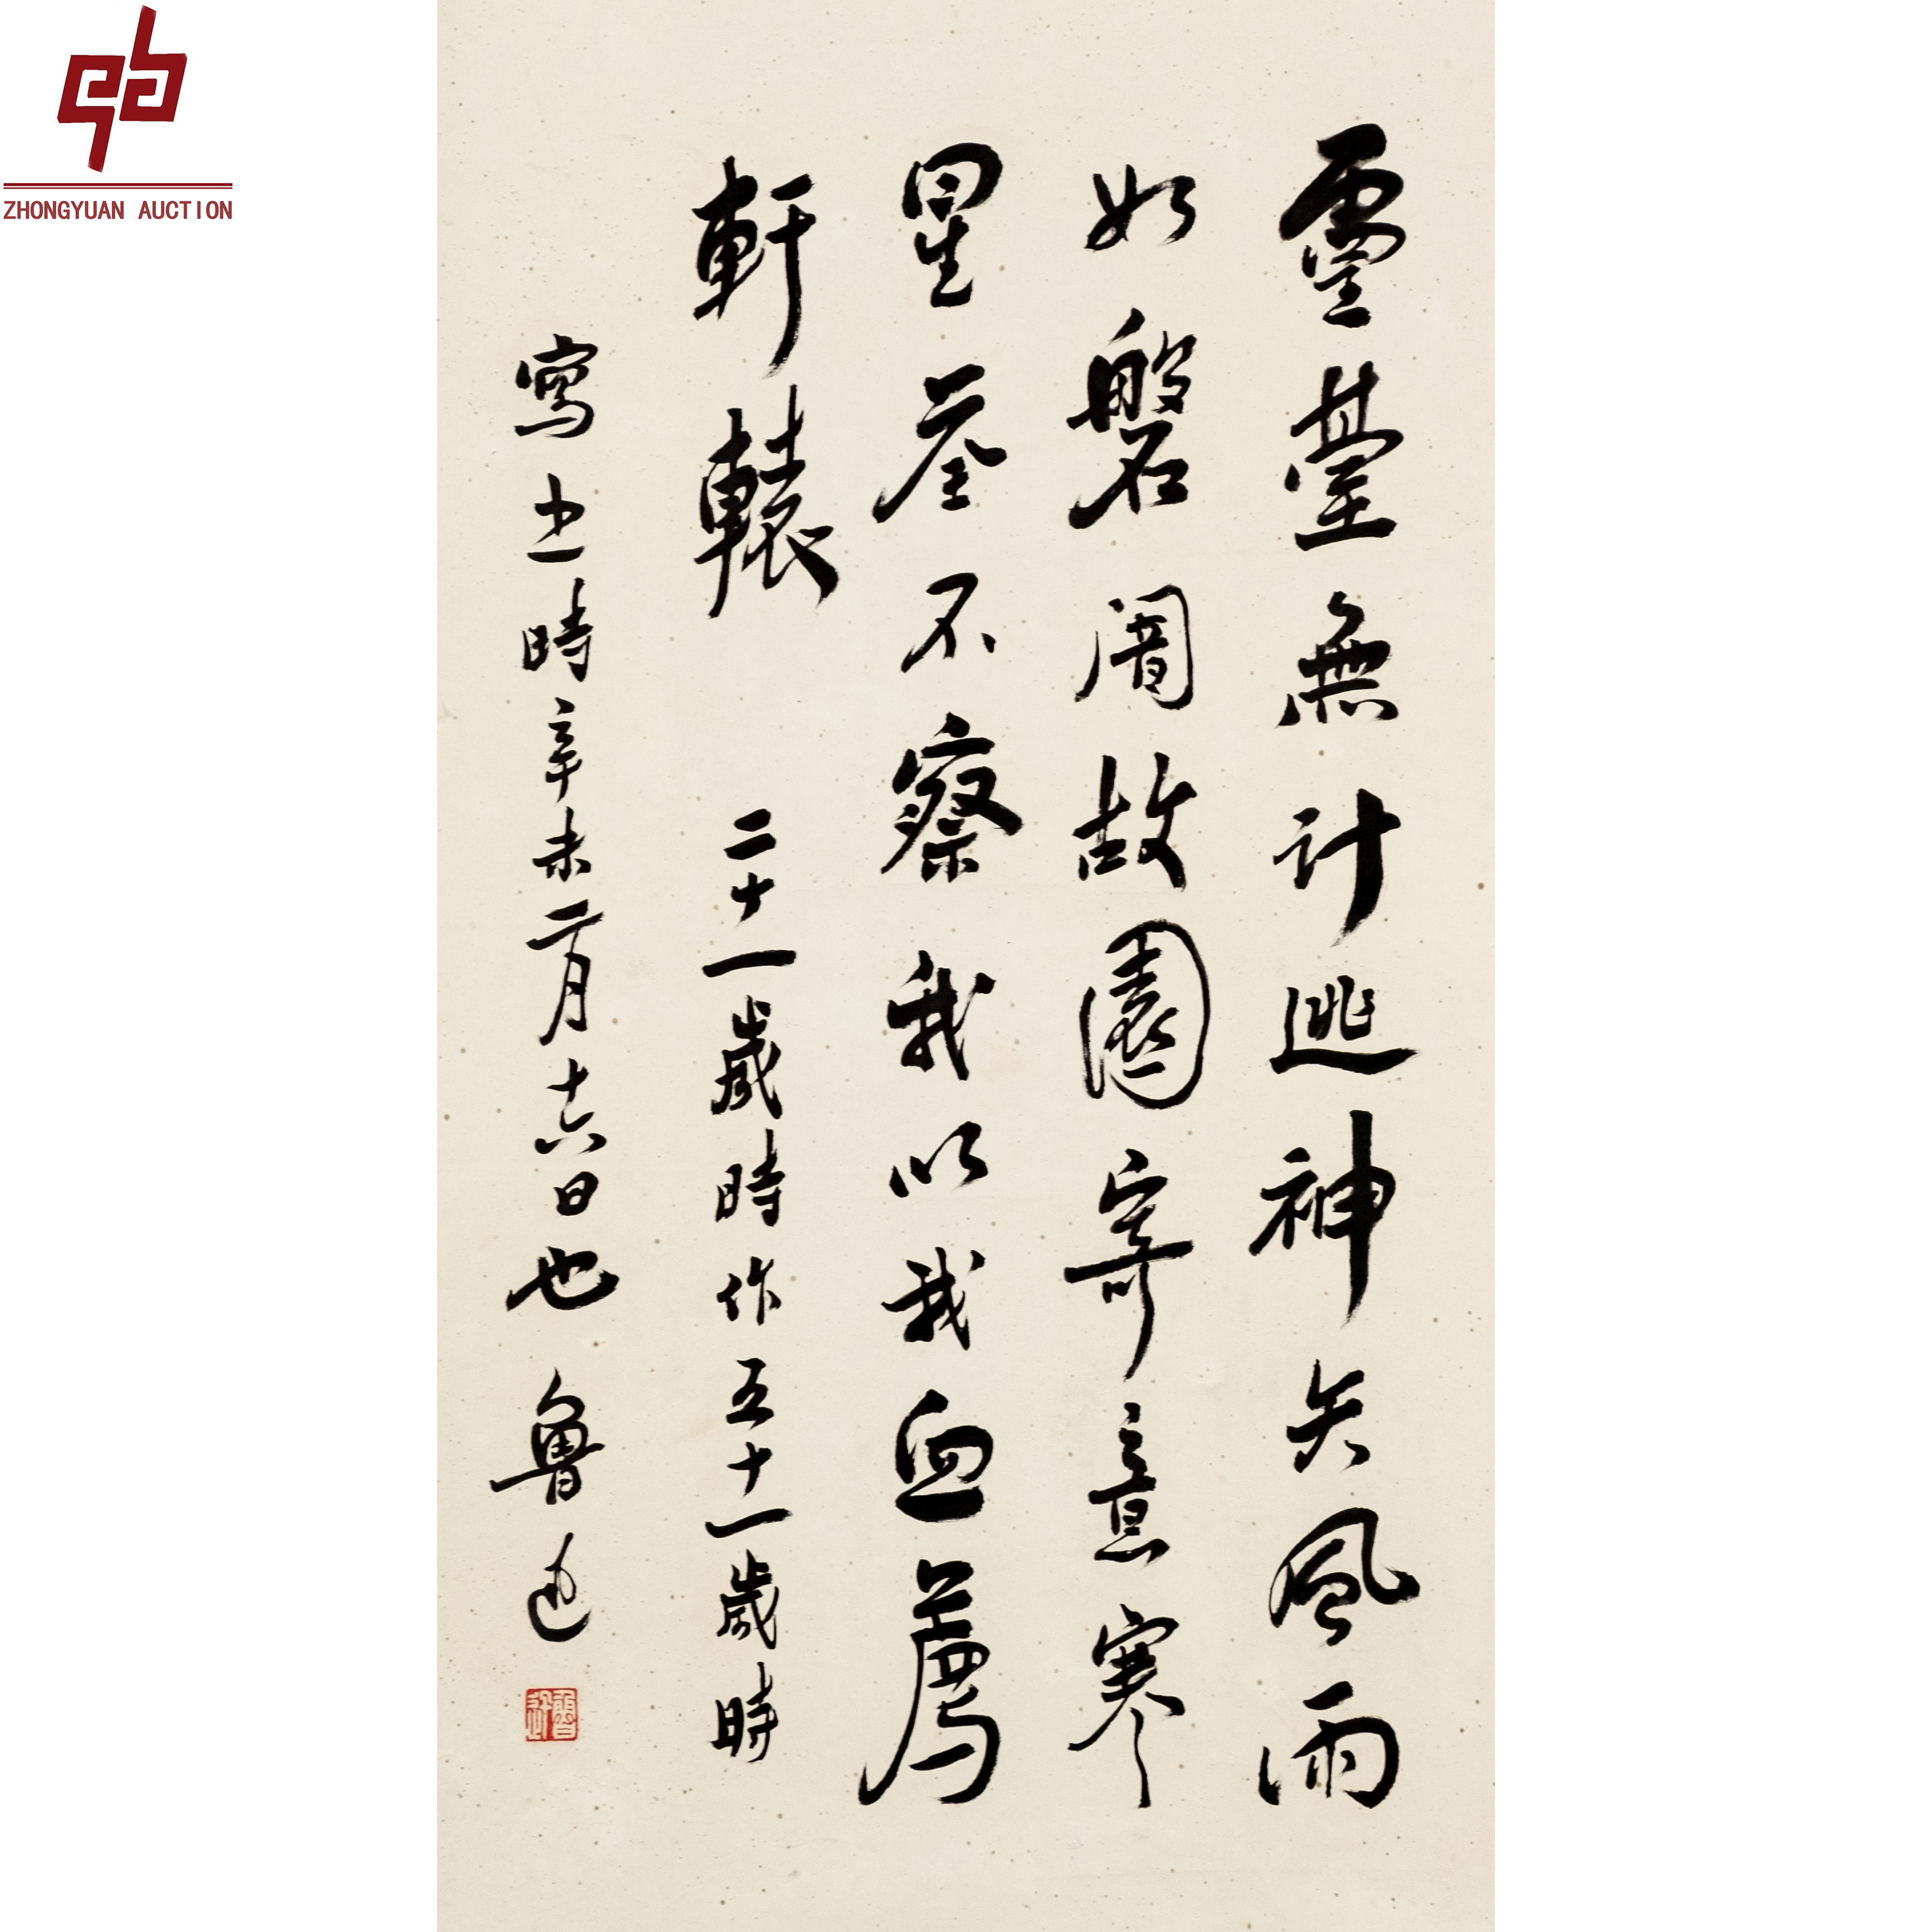 ZHONGYUAN AUCTION
靈臺無計逃神矢風雨
如磐闇故園寄意寒
星荃不察我以我血薦
軒轅 二十一歲時作五十一歲時
寫之時辛未二月十六日也 魯迅
魯迅